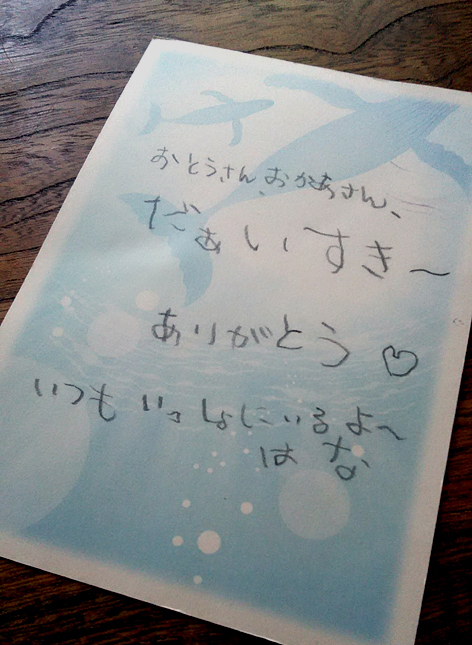 おとうさん、おかあさん、
だぁいすき〜
ありがとう♡
いつもいっしょにいるよ〜
はな